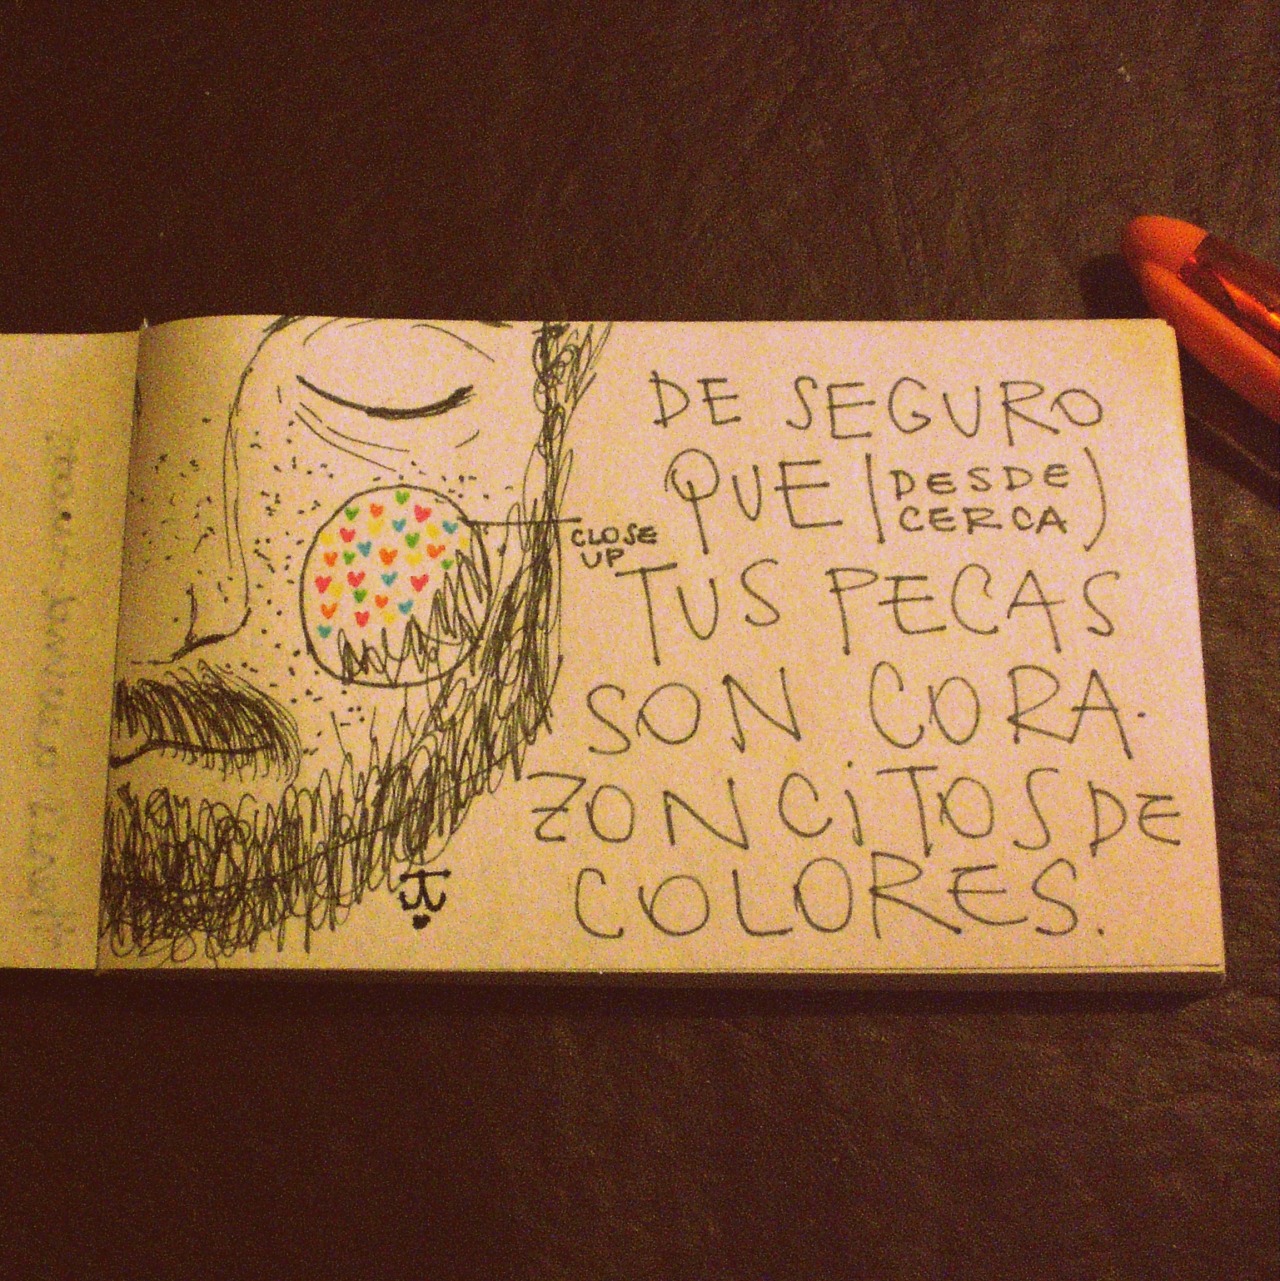 DE SEGURO
QUE (DESDE
CERCA)
CLOSE
UP
TUS PECAS
SON CORA-
ZONCiTOS DE
COLORES.